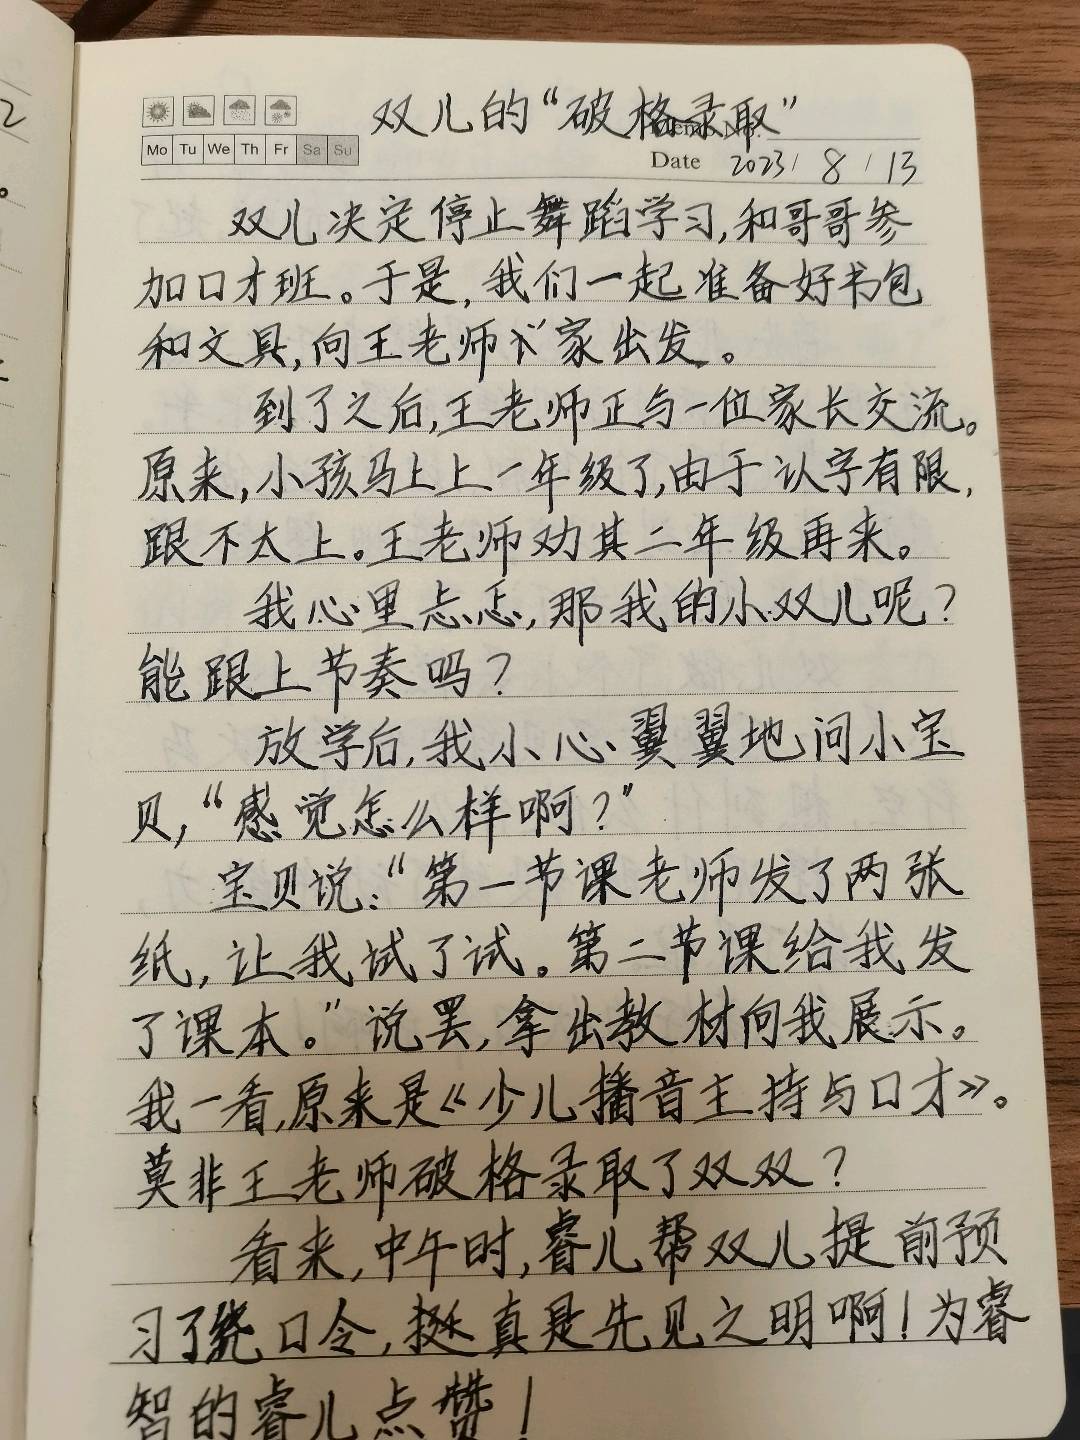 双儿的“破格录取”
Mo Tu We Th Fr Sa Su
Date 2023/8/13
双儿决定停止舞蹈学习,和哥哥参
加口才班。于是,我们一起准备好书包
和文具,向王老师家出发。
到了之后,王老师正与一位家长交流。
原来,小孩马上上一年级了,由于认字有限,
跟不太上。王老师劝其二年级再来。
我心里忐忑,那我的小双儿呢?
能跟上节奏吗?
放学后,我小心翼翼地问小宝
贝,“感觉怎么样啊?”
宝贝说:“第一节课老师发了两张
纸,让我试了试。第二节课给我发
了课本。”说罢,拿出教材向我展示。
我一看,原来是《少儿播音主持与口才》。
莫非王老师破格录取了双双?
看来,中午时,睿儿帮双儿提前预
习了绕口令,挺真是先见之明啊!为睿
智的睿儿点赞!